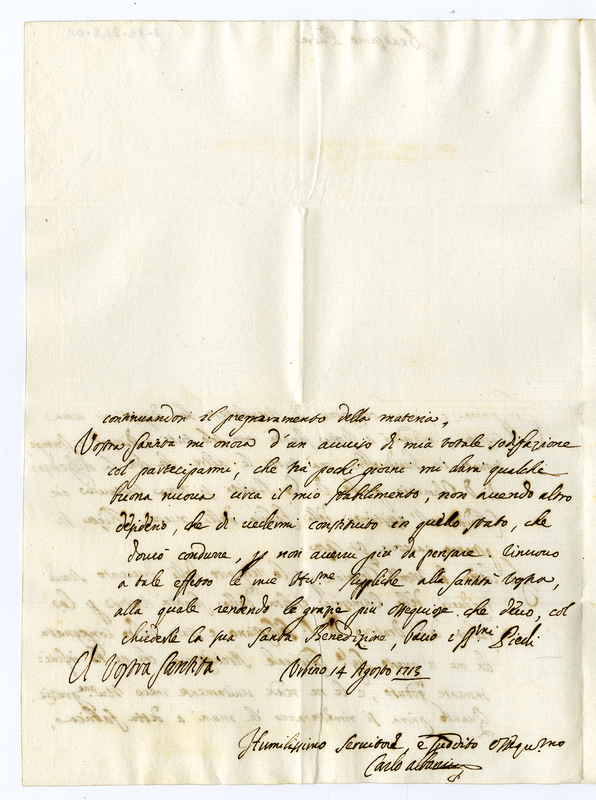 continuandosi il preparamento della materia.
Vostra Santità mi onora d'un avviso di mia totale sodisfazione
col parteciparmi, che trà pochi giorni mi darà qualche
buona nuova circa il mio stabilimento, non avendo altro
desiderio, che di vedermi constituto in quello stato, che
dovrò condurre, p non avervi più da pensare. Rinuovo
a tale effetto le mie Hum.me suppliche alla Santità Vostra,
alla quale rendendo le grazie più ossequiose che devo, col
chiederle la sua Santa Benedizione, bacio i SS.mi Piedi
A Vostra Santità Urbino 14 Agosto 1713
Humilissimo Servitore, e suddito osseq.mo
Carlo Albani